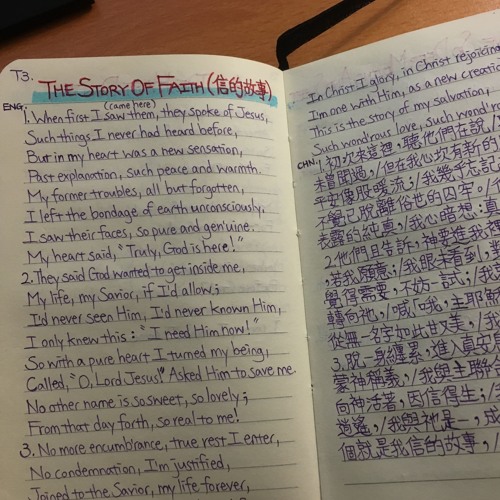 T3.
THE STORY OF FAITH (信的故事)
ENG. (came here)
1. When first I saw them, they spoke of Jesus,
Such things I never had heard before,
But in my heart was a new sensation,
Past explanation, such peace and warmth.
My former troubles, all but forgotten,
I left the bondage of earth unconsciously,
I saw their faces, so pure and gen'uine.
My heart said, "Truly, God is here!"
2. They said God wanted to get inside me,
My life, my Savior, if I'd allow;
I'd never seen Him, I'd never known Him,
I only knew this: "I need Him now!"
So with a pure heart I turned my being,
Called, "O, Lord Jesus!" Asked Him to save me.
No other name is so sweet, so lovely;
From that day forth, so real to me!
3. No more encumbrance, true rest I enter,
No condemnation, I'm justified,
Joined to the Savior, my life forever,
In Christ I glory, in Christ rejoicing
I'm one with Him, as a new creatio
This is the story of my salvation,
Such wond'rous love, such
CHN. 1.初次來這裡,聽他們在說/
未曾聞過,/但在我心坎有新的
平安像股暖流;/我幾乎忘記
不覺已脫離俗世的囚牢,/
表露的純真,/我心暗想:真
2.他們且告訴,神要進我
,若我願意;/我眼未看到,
覺得需要,不妨一試;/我
轉向祂,/喊「哦,主耶穌
從無一名字如此甘又美,/我
3.脫一身纏累,進入真安息
蒙神稱義;/我與主聯
向神活著,因信得生;/
逍遙,/我與祂是一,成
個就是我信的故事,/